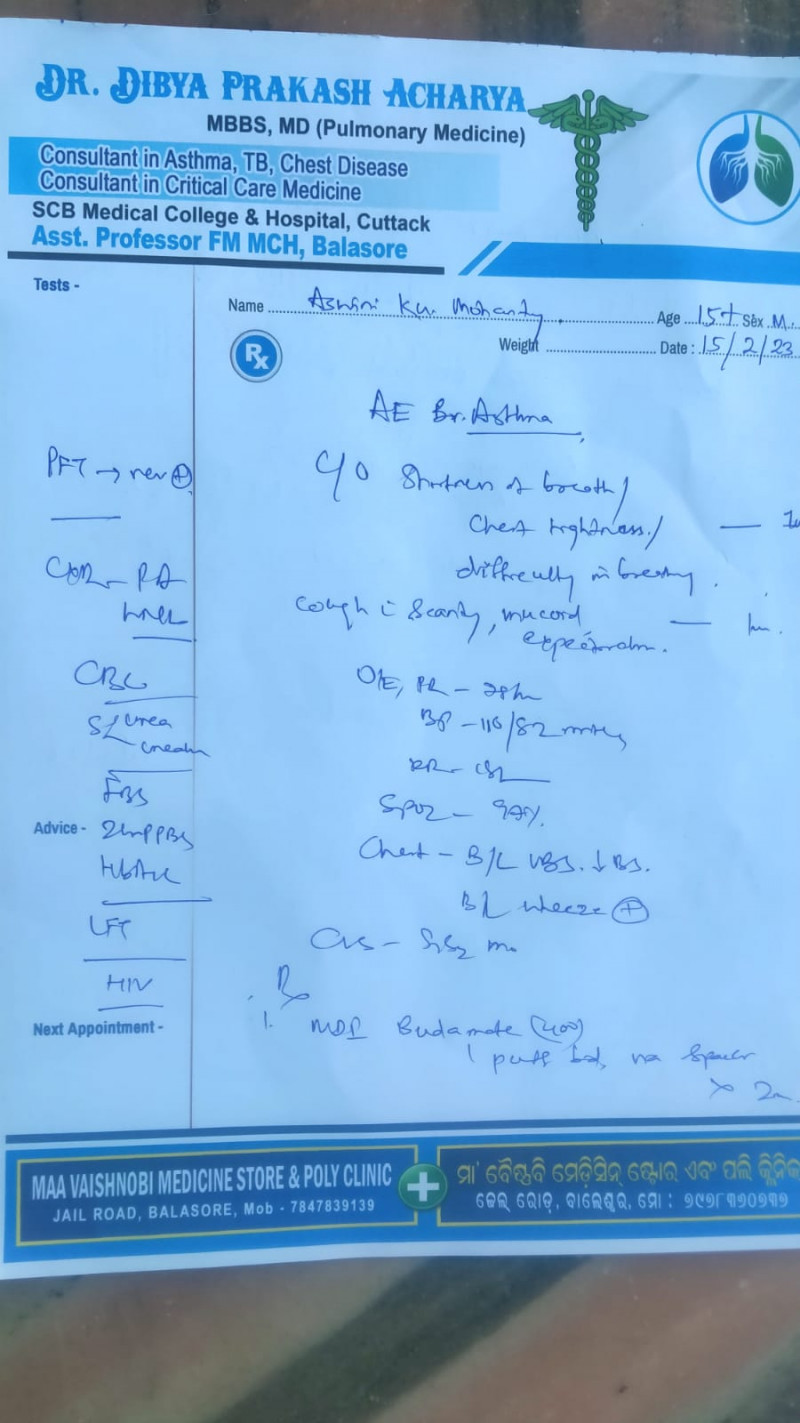 DR. DIBYA PRAKASH ACHARYA
MBBS, MD (Pulmonary Medicine)
Consultant in Asthma, TB, Chest Disease
Consultant in Critical Care Medicine
SCB Medical College & Hospital, Cuttack
Asst. Professor FM MCH, Balasore
Tests -
Name Ku. Mohanty Age Sex M.
Weight Date : 15/2/23
Rx
AE Br. Asthma
PFT → rev +
C/O Shortness of breath/
Chest tightness/
difficulty in
PA
Cough c Scanty, mucoid
expectoration.
CBC
S/ Urea
O/E, PR -
BP - 110/82 mmHg
RR -
FBS
SpO2 -
Advice - 2hrPPBS
Chest - B/L VBS. ↓ BS.
HbA1c
B/L wheeze +
LFT
CVS - S1S2
HIV
Rx
Next Appointment -
1. MDI Budamate (400)
1 puff bd, via Spacer
MAA VAISHNOBI MEDICINE STORE & POLY CLINIC
JAIL ROAD, BALASORE, Mob - 7847839139
ମା' ବୈଷ୍ଣବି ମେଡ଼ିସିନ୍ ଷ୍ଟୋର ଏବଂ ପଲି କ୍ଲିନିକ
ଜେଲ୍ ରୋଡ଼, ବାଲେଶ୍ୱର, ମୋ :